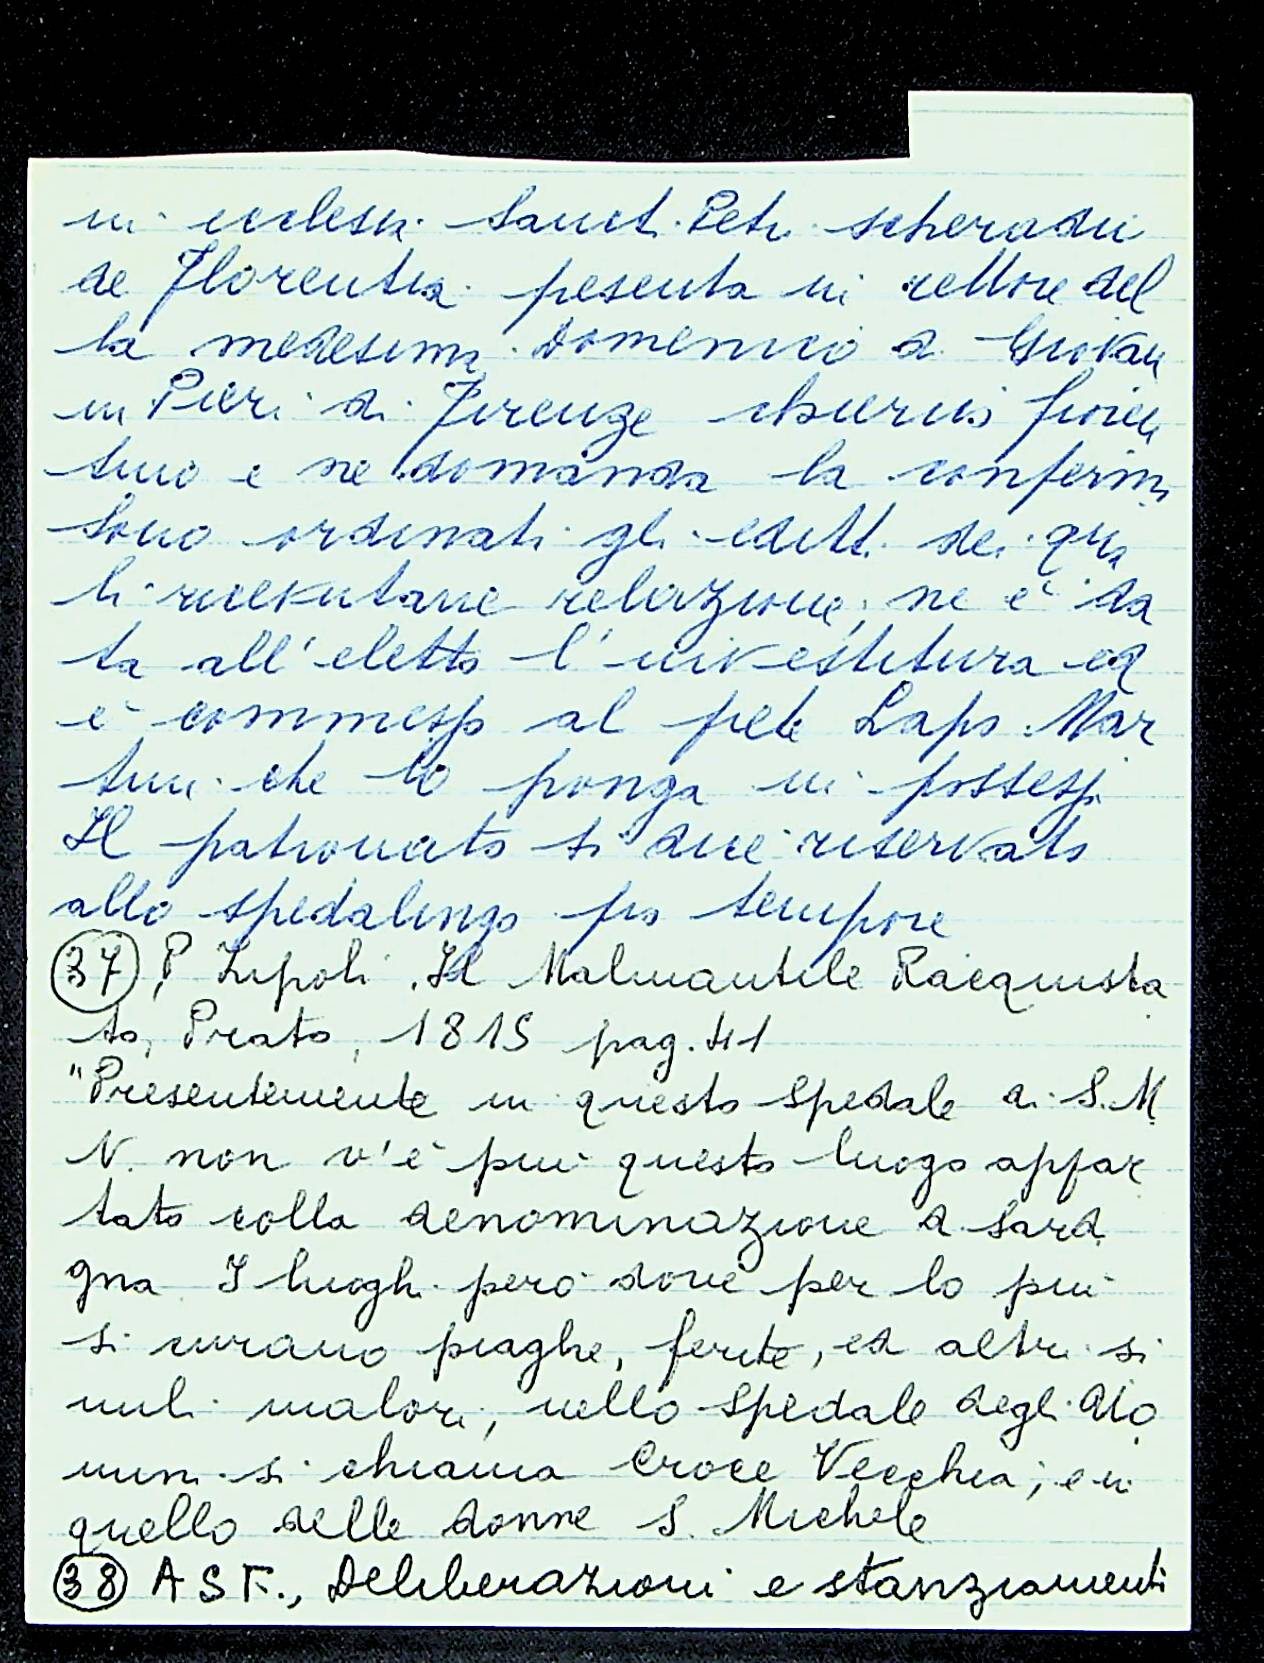 in ecclesia Sancti Petri scheradii
de Florentia. presenta in rettore del
la medesima Domenico di Giovan
ni Pieri di Firenze chierico fioren
tino e ne domanda la conferma
Sono ordinati gli editti dei qua
li ricevutane relazione, ne è da
ta all'eletto l'investitura ed
è commesso al prete Lapo Mar
tini che lo ponga in possesso
Il patronato si dice riservato
allo spedalingo pro tempore
(37) P. Lipoli. Il Malmantile Racquista
to, Prato, 1815 pag. 41
"Presentemente in questo spedale di S.M
N. non v'è più questo luogo appar
tato colla denominazione di Sarde
gna I luoghi però dove per lo più
si curano piaghe, ferite, ed altri si
mili malori, nello Spedale degli Uo
mini si chiama Croce Vecchia; e in
quello delle donne S. Michele
(38) A S F., Deliberazioni e stanziamenti